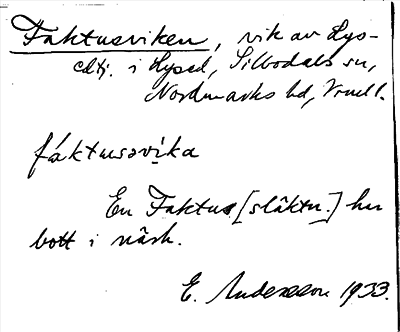 Faktusviken, vik av Lys-
edtj. i Lysed, Silbodals sn,
Nordmarks hd, Vrml.
fáktusavika
En Faktus [släktn.] har
bott i närh.
E. Andersson 1933.